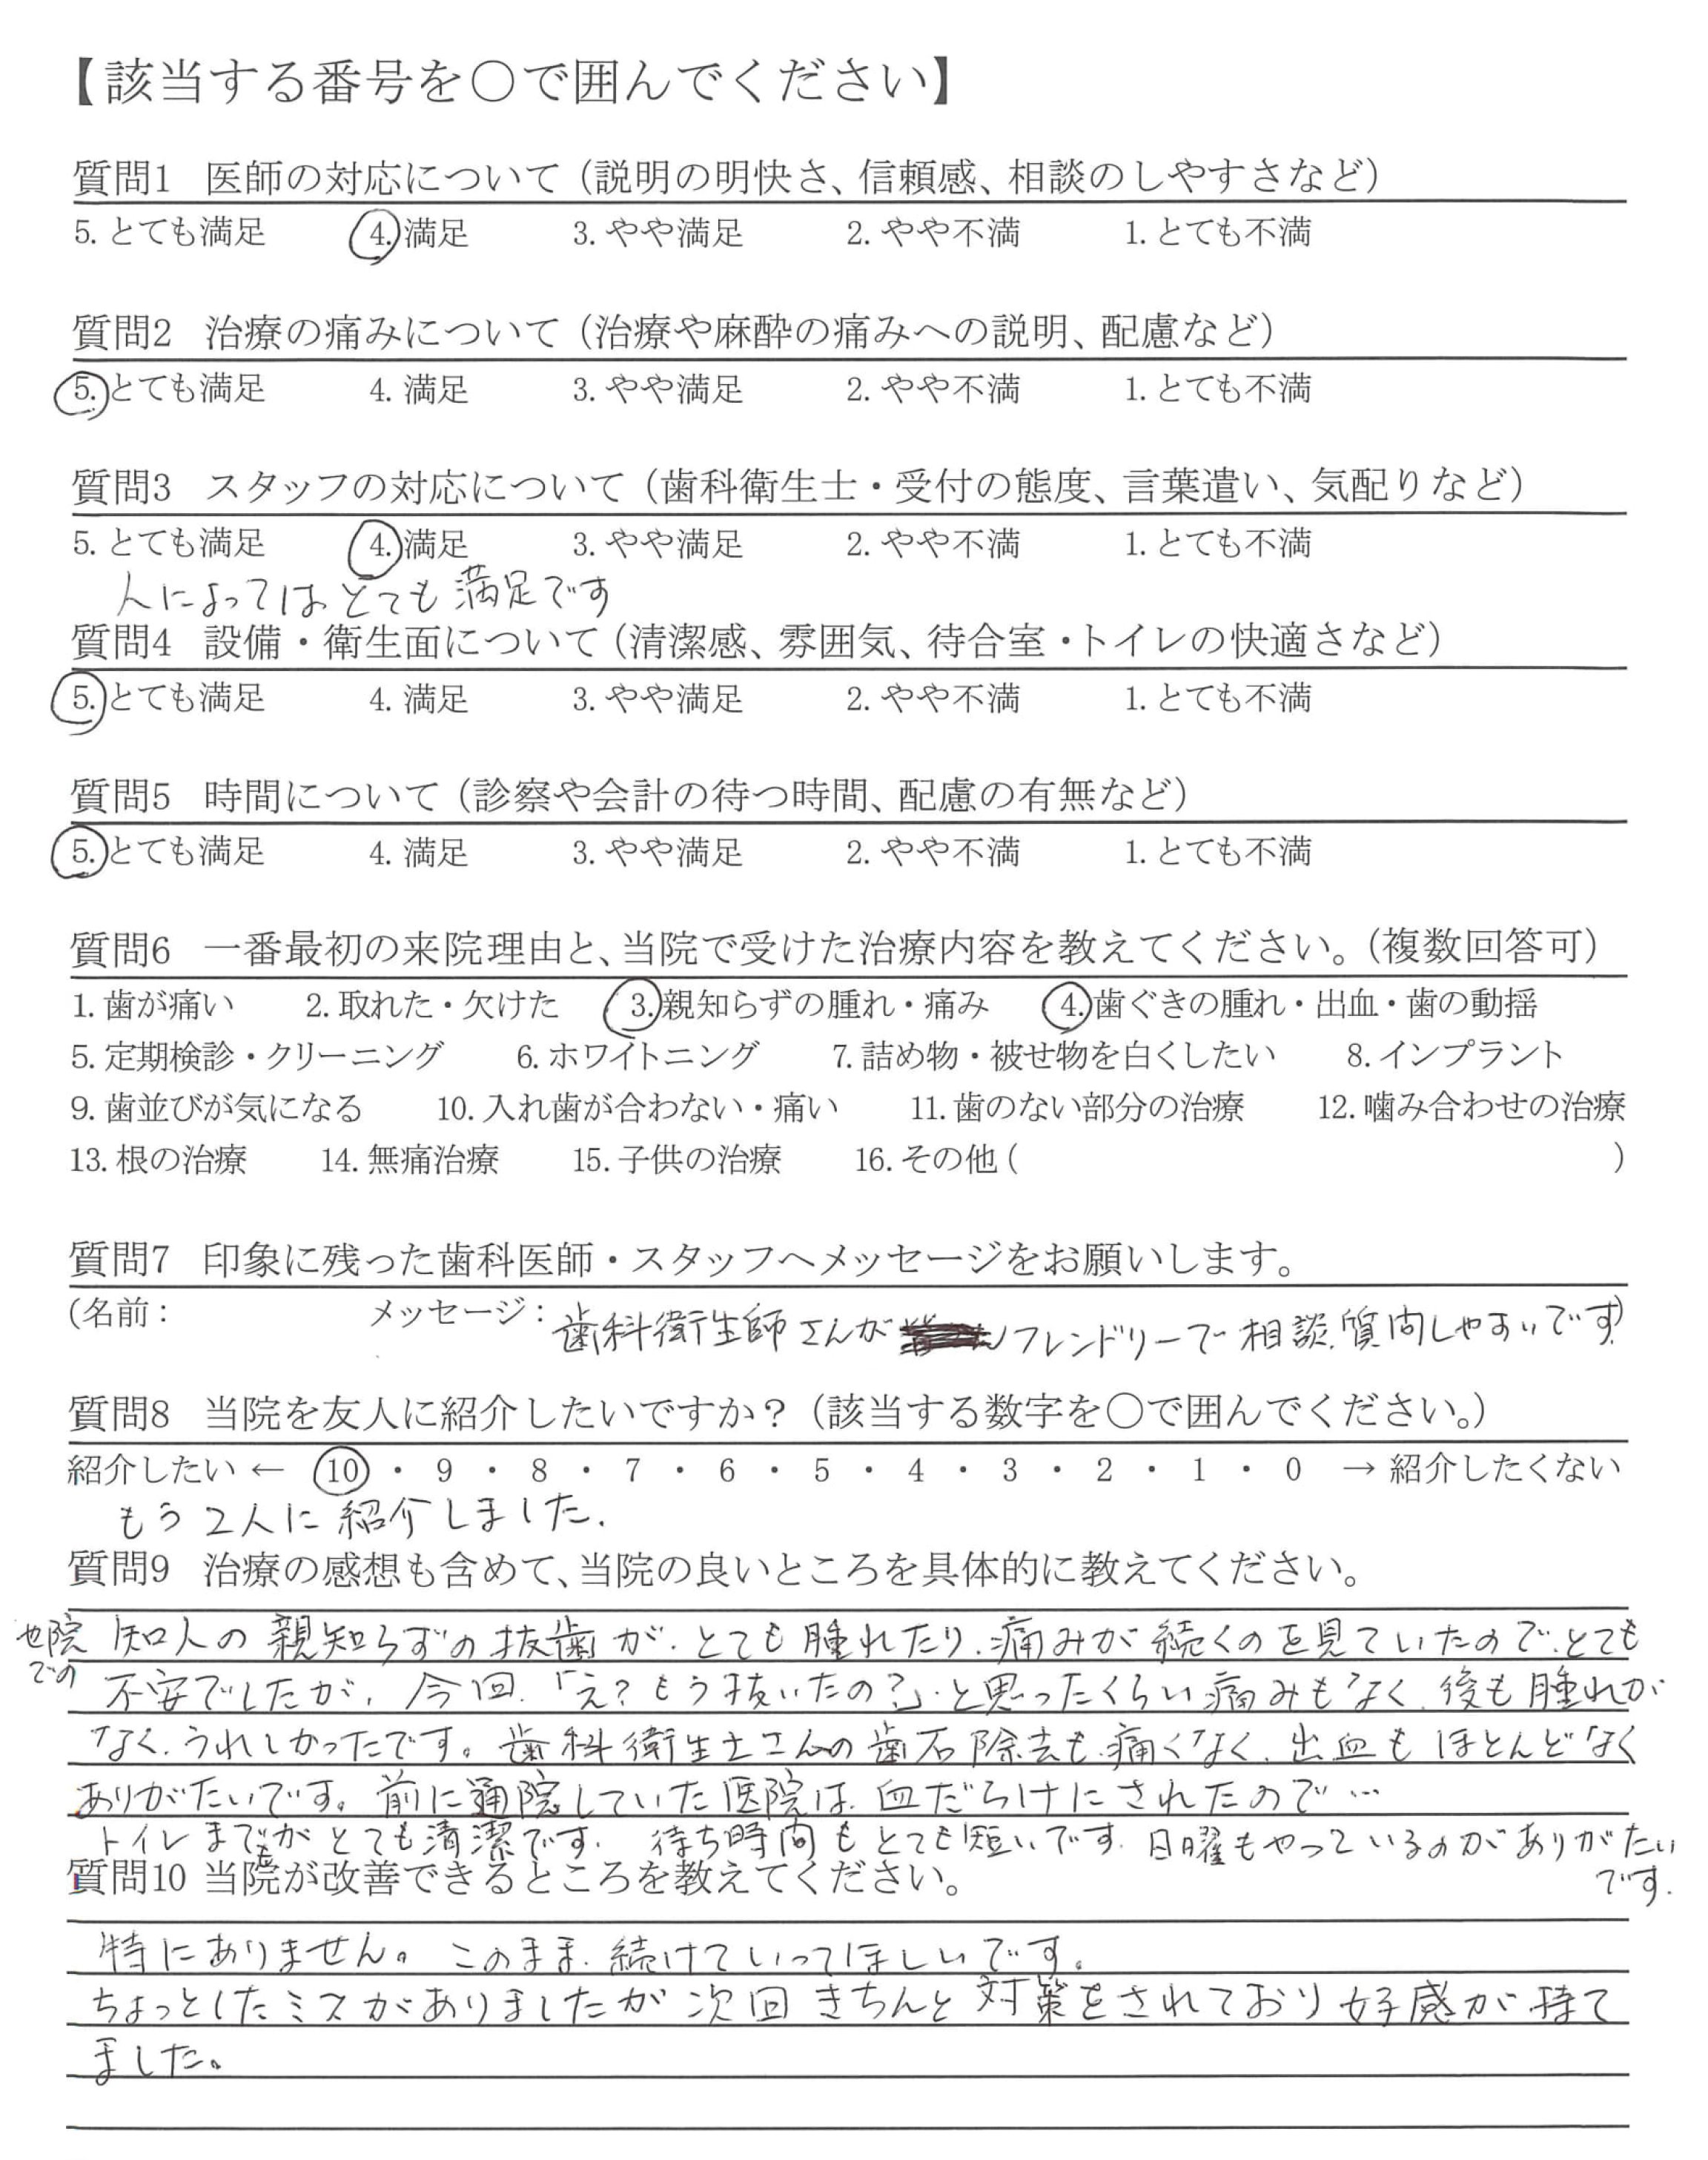 【該当する番号を○で囲んでください】
質問1 医師の対応について（説明の明快さ、信頼感、相談のしやすさなど）
5. とても満足 4. 満足 3. やや満足 2. やや不満 1. とても不満
質問2 治療の痛みについて（治療や麻酔の痛みへの説明、配慮など）
5. とても満足 4. 満足 3. やや満足 2. やや不満 1. とても不満
質問3 スタッフの対応について（歯科衛生士・受付の態度、言葉遣い、気配りなど）
5. とても満足 4. 満足 3. やや満足 2. やや不満 1. とても不満
人によってはとても満足です
質問4 設備・衛生面について（清潔感、雰囲気、待合室・トイレの快適さなど）
5. とても満足 4. 満足 3. やや満足 2. やや不満 1. とても不満
質問5 時間について（診察や会計の待つ時間、配慮の有無など）
5. とても満足 4. 満足 3. やや満足 2. やや不満 1. とても不満
質問6 一番最初の来院理由と、当院で受けた治療内容を教えてください。（複数回答可）
1. 歯が痛い 2. 取れた・欠けた 3. 親知らずの腫れ・痛み 4. 歯ぐきの腫れ・出血・歯の動揺
5. 定期検診・クリーニング 6. ホワイトニング 7. 詰め物・被せ物を白くしたい 8. インプラント
9. 歯並びが気になる 10. 入れ歯が合わない・痛い 11. 歯のない部分の治療 12. 噛み合わせの治療
13. 根の治療 14. 無痛治療 15. 子供の治療 16. その他（ ）
質問7 印象に残った歯科医師・スタッフへメッセージをお願いします。
（名前： メッセージ：歯科衛生師さんがフレンドリーで相談、質問しやすいです）
質問8 当院を友人に紹介したいですか？（該当する数字を○で囲んでください。）
紹介したい ← 10 ・ 9 ・ 8 ・ 7 ・ 6 ・ 5 ・ 4 ・ 3 ・ 2 ・ 1 ・ 0 → 紹介したくない
もう2人に紹介しました。
質問9 治療の感想も含めて、当院の良いところを具体的に教えてください。
他院での
知人の親知らずの抜歯が、とても腫れたり、痛みが続くのを見ていたので、とても
不安でしたが、今回、「え？もう抜いたの？」と思ったくらい痛みもなく、後も腫れが
なく、うれしかったです。歯科衛生士さんの歯石除去も痛くなく、出血もほとんどなく
ありがたいです。前に通院していた医院は、血だらけにされたので…
トイレまでもがとても清潔です。待ち時間もとても短いです。日曜もやっているのがありがたい
です。
質問10 当院が改善できるところを教えてください。
特にありません。このまま、続けていってほしいです。
ちょっとしたミスがありましたが次回きちんと対策をされており好感が持て
ました。